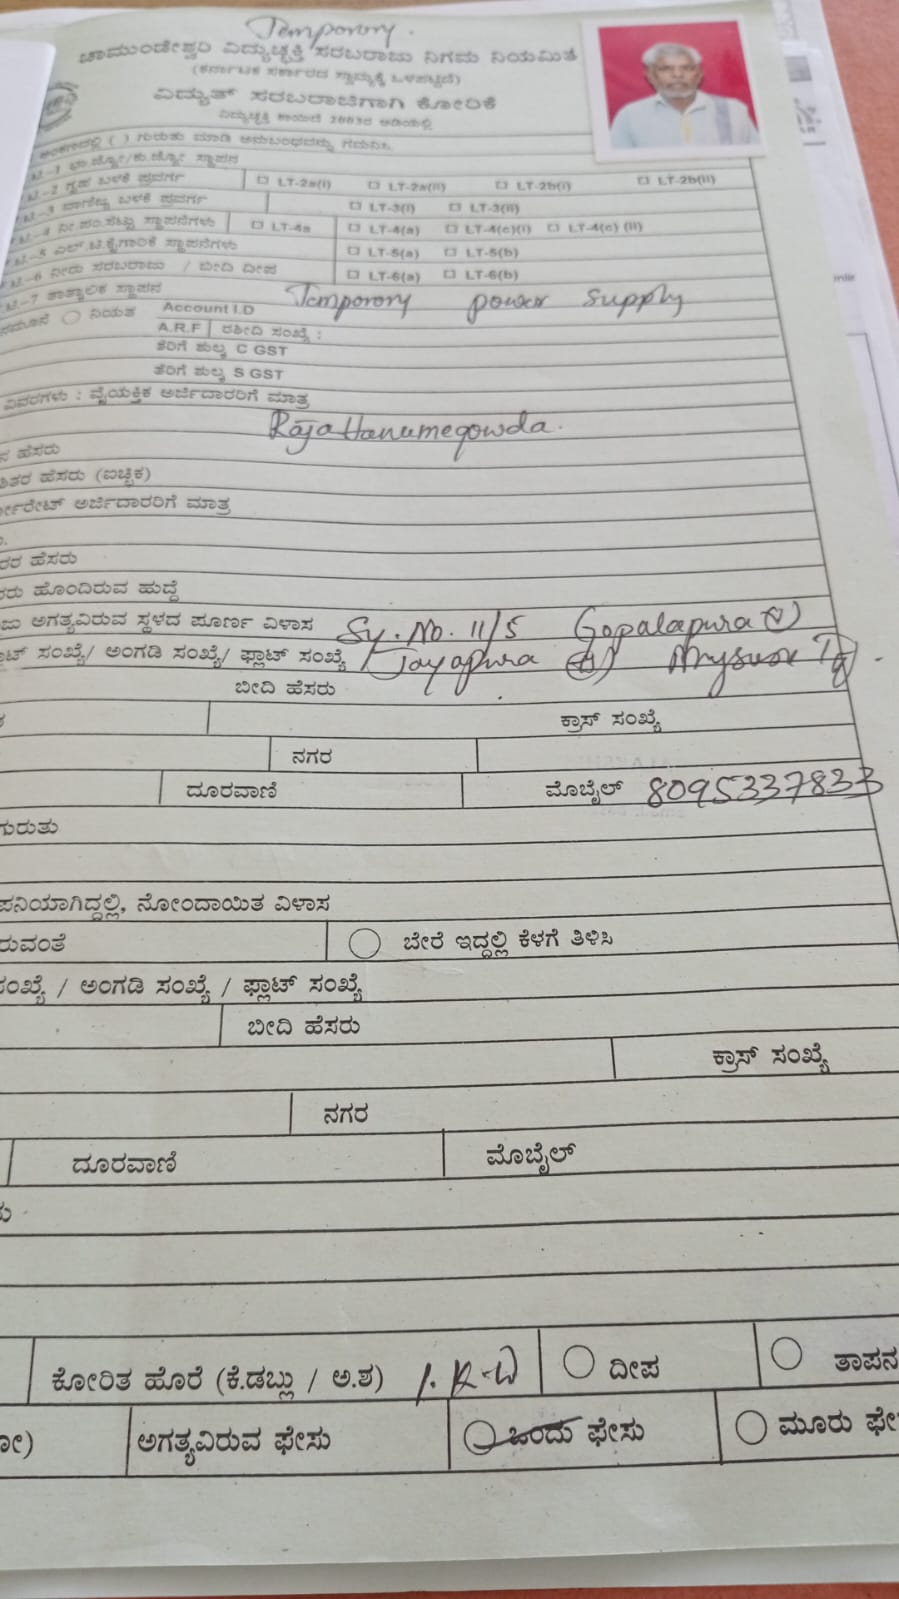 Temporory.
ಚಾಮುಂಡೇಶ್ವರಿ ವಿದ್ಯುಚ್ಛಕ್ತಿ ಸರಬರಾಜು ನಿಗಮ ನಿಯಮಿತ
(ಕರ್ನಾಟಕ ಸರ್ಕಾರದ ಸ್ವಾಮ್ಯಕ್ಕೆ ಒಳಪಟ್ಟಿದೆ)
ವಿದ್ಯುತ್ ಸರಬರಾಜಿಗಾಗಿ ಕೋರಿಕೆ
ವಿದ್ಯುಚ್ಛಕ್ತಿ ಕಾಯಿದೆ 2003ರ ಅಡಿಯಲ್ಲಿ
( ) ಗುರುತು ಮಾಡಿ ಅನುಬಂಧವನ್ನು ಗಮನಿಸಿ
ಸ್ಥಾಪನ
ಗೃಹ ಬಳಕೆ ಪ್ರವರ್ಗ LT-2a(i) LT-2a(ii) LT-2b(i) LT-2b(ii)
ವಾಣಿಜ್ಯ ಬಳಕೆ ಪ್ರವರ್ಗ LT-3(i) LT-3(ii)
ನೀ.ಪಂ.ಸೆಟ್ಟು ಸ್ಥಾಪನೆಗಳು LT-4a LT-4(a) LT-4(c)(i) LT-4(c) (ii)
ಎಲ್.ಟಿ.ಕೈಗಾರಿಕೆ ಸ್ಥಾಪನೆಗಳು LT-5(a) LT-5(b)
ನೀರು ಸರಬರಾಜು / ಬೀದಿ ದೀಪ LT-6(a) LT-6(b)
ತಾತ್ಕಾಲಿಕ ಸ್ಥಾಪನ Temporory power supply
ನಿಯತ Account I.D
A.R.F ರಶೀದಿ ಸಂಖ್ಯೆ :
ತೆರಿಗೆ ಶುಲ್ಕ C GST
ತೆರಿಗೆ ಶುಲ್ಕ S GST
ವಿವರಗಳು : ವೈಯಕ್ತಿಕ ಅರ್ಜಿದಾರರಿಗೆ ಮಾತ್ರ
RajaHanumegowda.
ಹೆಸರು
ಹೆಸರು (ಐಚ್ಛಿಕ)
ಅರ್ಜಿದಾರರಿಗೆ ಮಾತ್ರ
ಹೆಸರು
ಹೊಂದಿರುವ ಹುದ್ದೆ
ಅಗತ್ಯವಿರುವ ಸ್ಥಳದ ಪೂರ್ಣ ವಿಳಾಸ Sy.No. 11/5 Gopalapura (V)
ಸಂಖ್ಯೆ/ ಅಂಗಡಿ ಸಂಖ್ಯೆ/ ಫ್ಲಾಟ್ ಸಂಖ್ಯೆ Jayapura (H) Mysuru Tq.
ಬೀದಿ ಹೆಸರು
ಕ್ರಾಸ್ ಸಂಖ್ಯೆ
ನಗರ
ದೂರವಾಣಿ ಮೊಬೈಲ್ 8095337833
ಗುರುತು
ನೋಂದಾಯಿತ ವಿಳಾಸ
ಬೇರೆ ಇದ್ದಲ್ಲಿ ಕೆಳಗೆ ತಿಳಿಸಿ
ಸಂಖ್ಯೆ / ಅಂಗಡಿ ಸಂಖ್ಯೆ / ಫ್ಲಾಟ್ ಸಂಖ್ಯೆ
ಬೀದಿ ಹೆಸರು
ಕ್ರಾಸ್ ಸಂಖ್ಯೆ
ನಗರ
ದೂರವಾಣಿ ಮೊಬೈಲ್
ಕೋರಿತ ಹೊರೆ (ಕೆ.ಡಬ್ಲು / ಅ.ಶ) 1.K.W ದೀಪ ತಾಪನ
ಅಗತ್ಯವಿರುವ ಫೇಸು ಒಂದು ಫೇಸು ಮೂರು